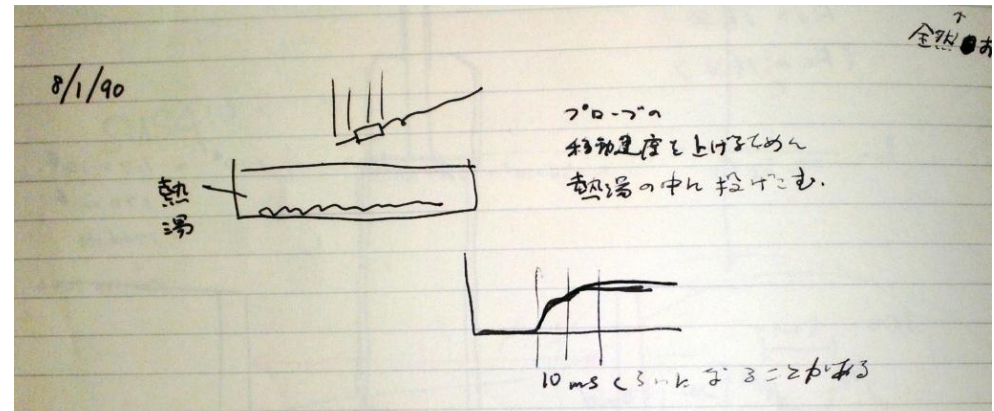 全然
8/1/90
プローブの
移動速度を上げるため
熱湯の中に投げこむ.
熱
湯
10 ms くらいになることがある